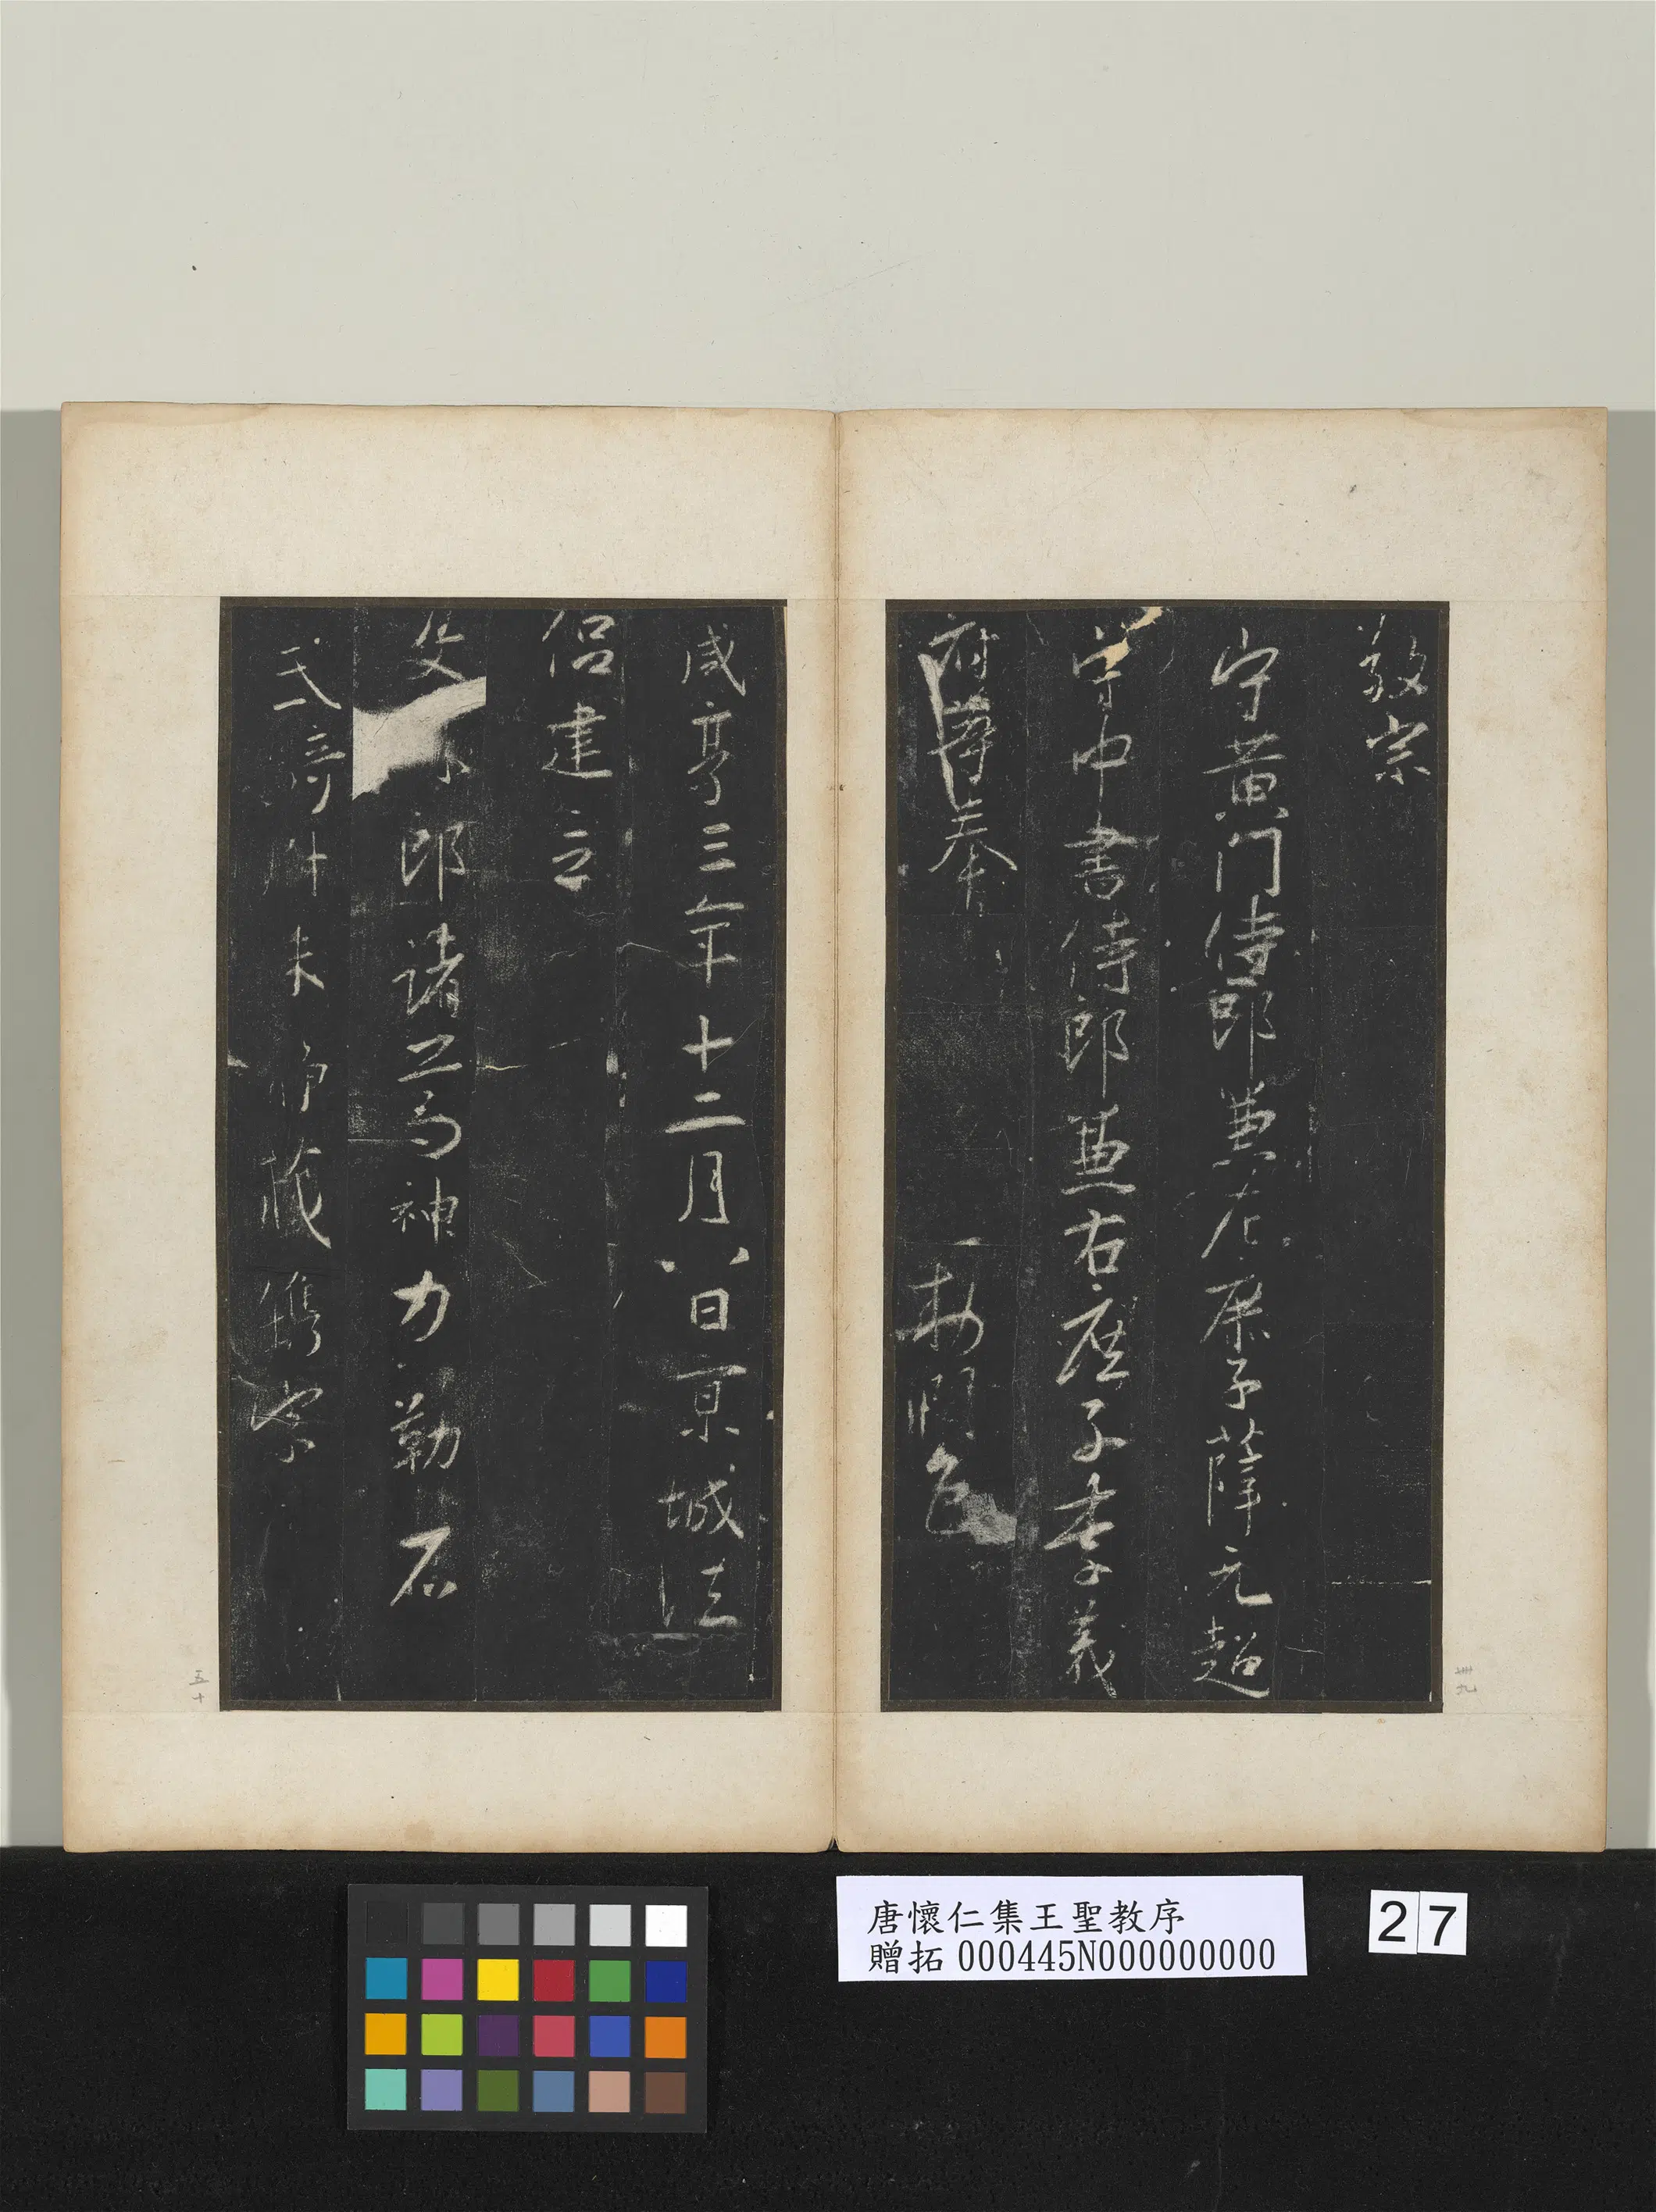 敬宗
守黃門侍郎兼左庶子薛元超
守中書侍郎兼右庶子李義
府等奉 敕潤色
咸亨三年十二月八日京城法
侶建立
文 郎諸葛神力勒石
武騎尉朱靜藏鐫字
卅九
五十
唐懷仁集王聖教序
贈拓 000445N000000000
27